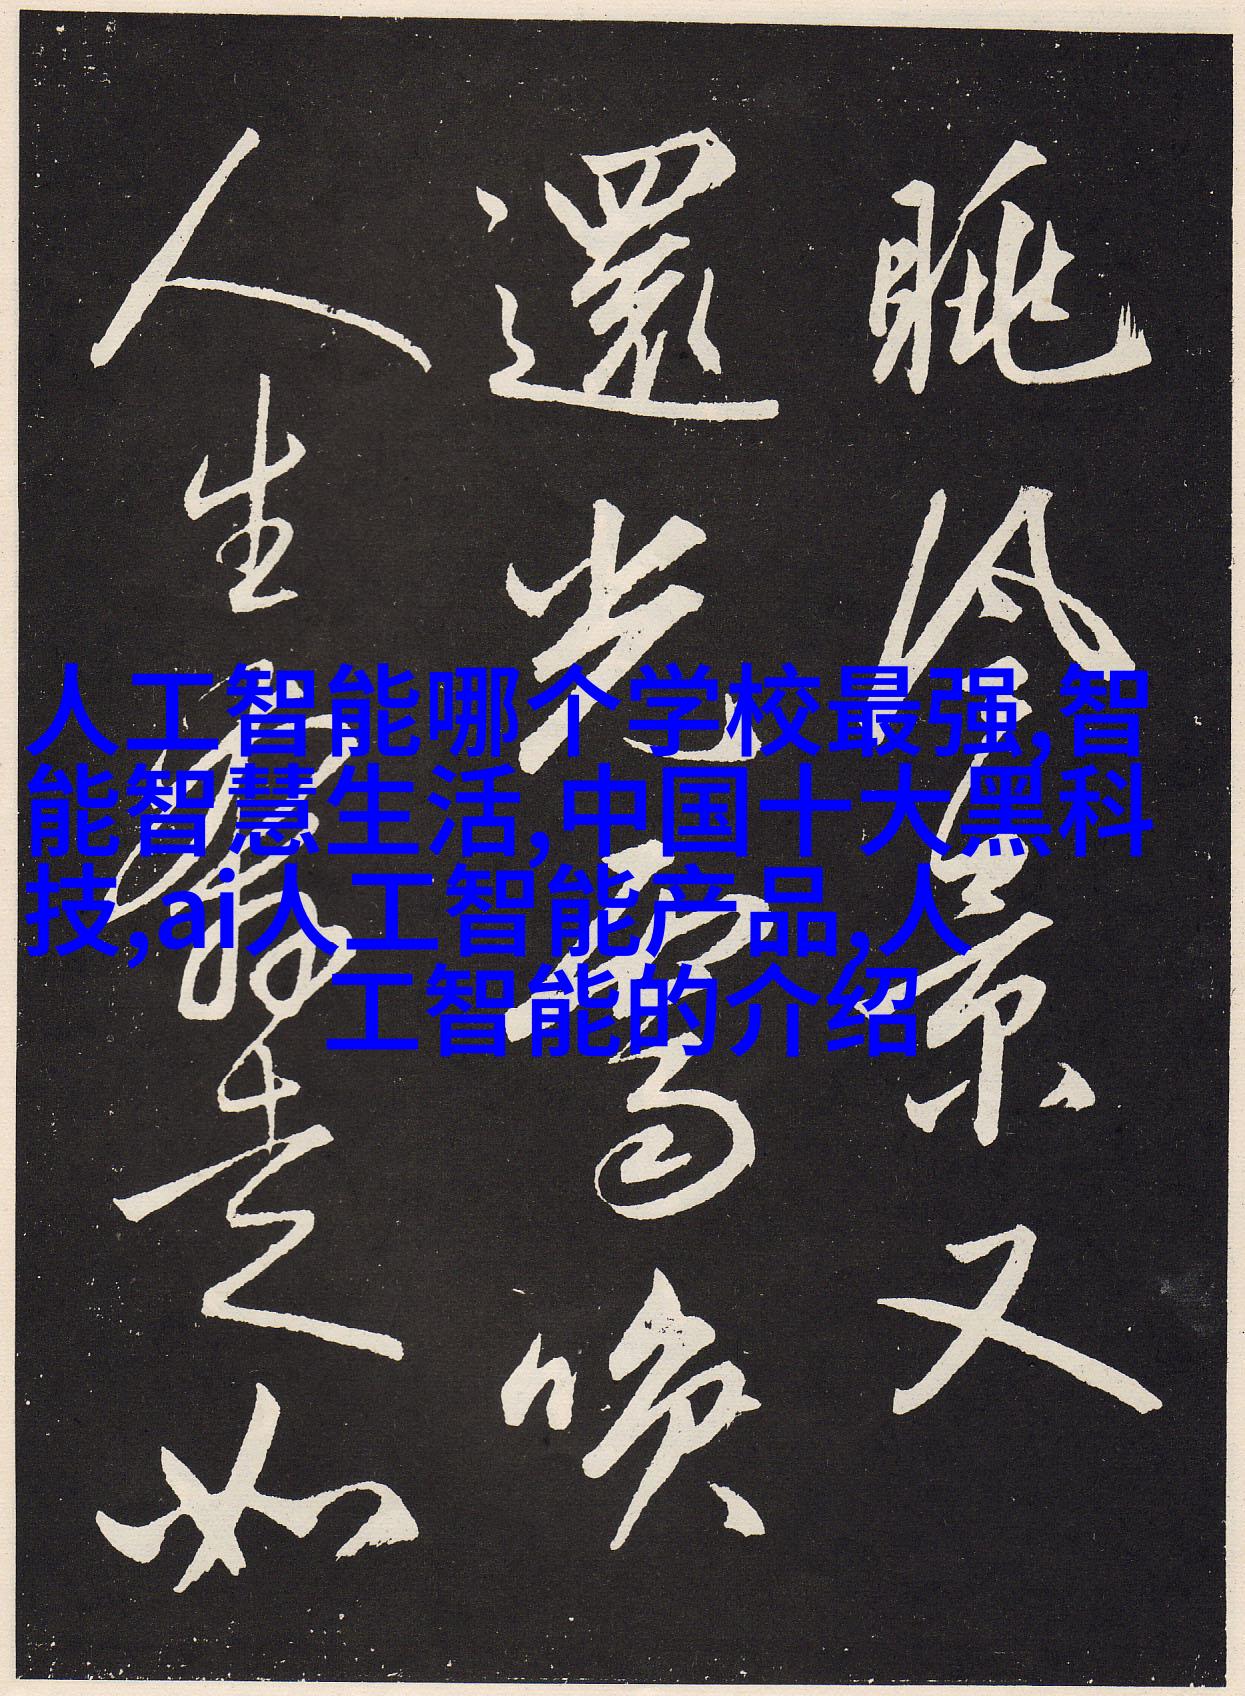 人工智能哪个学校最强,智
能智慧生活,中国十大黑科
技,ai人工智能产品,人
工智能的介绍
眺景又
還光喚
人生如